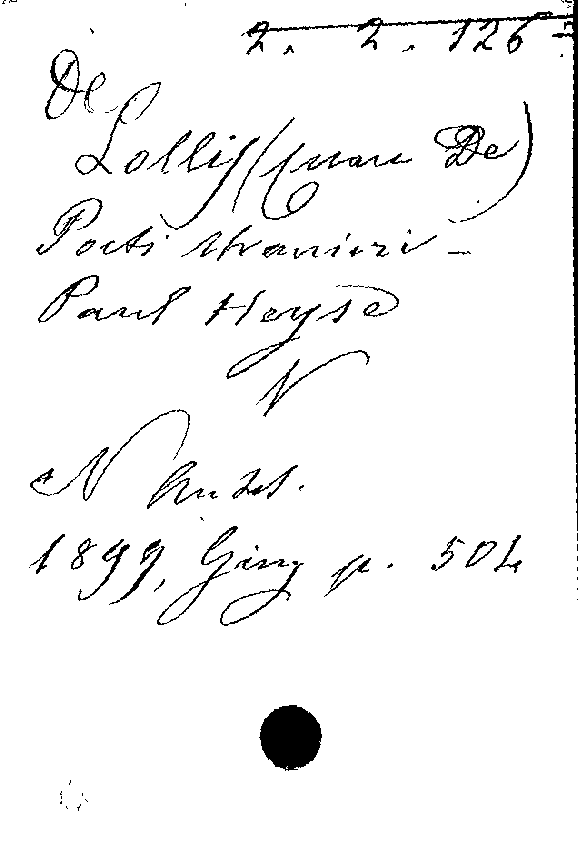 2. 2. 126
De
Lollis (Cesare De)
Poeti stranieri -
Paul Heyse
N
N Antol.
1899, Giug p. 504